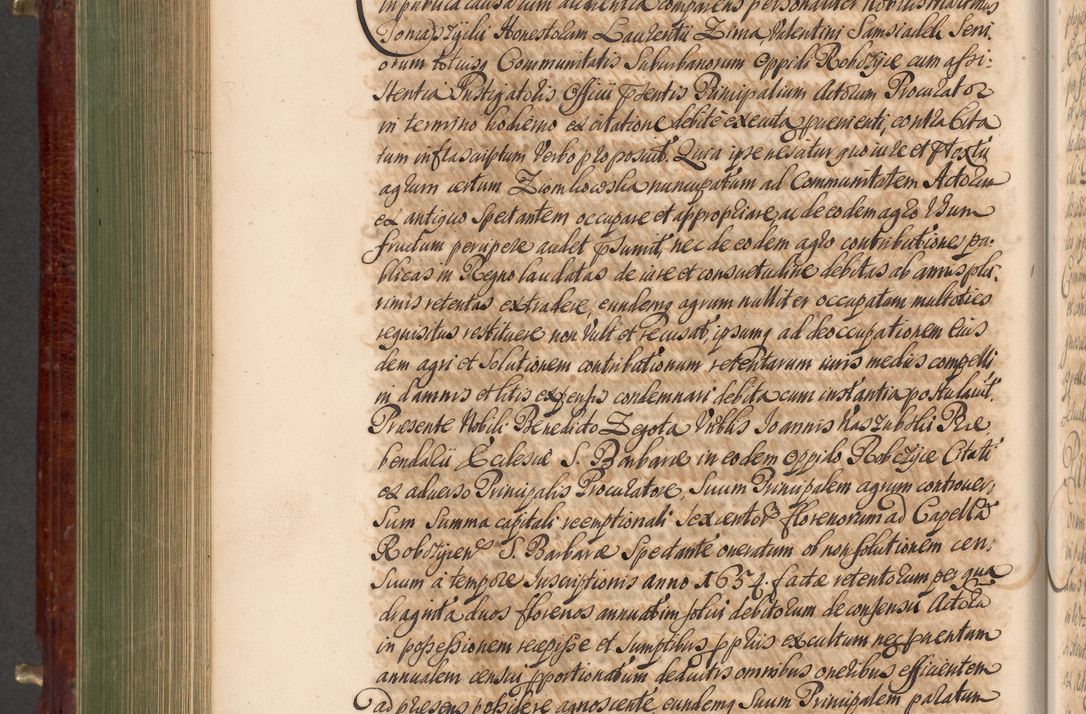 in publica causarum audientia comparens personaliter Nobilis Mathias
Tomaszycki Honestorum Laurentii Zima, Valentini Samsiadek Seni
orum totiusq Communitatis Suburbanorum Oppidi Robczyce cum assi:
stentia Instigatoris Officii pñtentis Principalium Actorum Procurator
in termino hodierno ex citatione debite executa provenienti, contra Cita
tum infrascriptum Verbo proposuit. Quia ipse nescitur quo iure et ptextu
agrum certum Ziomkowska nuncupatum ad Communitatem Actorum
ex antiquo Spectantem occupare et appropriare, ac de eodem agro Usum
fructum percipere audet psumit, nec de eodem agro contributiones pu:
blicas in Regno laudatas de iure et consuetudine debitas ab annis plu
rimis retentas extradere, eundemq agrum nulliter occupatum multoties
requisitus restituere non Vult et recusat, ipsumq ad deoccupationem eius
dem agri et Solutionem contributionum retentarum iuris mediis compelli
in damnis et litis expensis condemnari debita cum instantia postulavit.
Præsente Nobili Benedicto Zegota Vnblis Ioannis Kaszubski Præ
bendarii Ecclesiæ S. Barbaræ in eodem oppido Robczyce Citati
ex adverso Principalis Procuratore, Suum Principalem agrum controver;
Sum Summa capitali reemptionali Sexcentor florenorum ad Capellã
Robczycen S. Barbaræ Spectante oneratum ob non solutionem cen;
Suum à tempore Inscriptionis anno 1654. factæ retentorum per qua
draginta duos florenos annuatim solui debitorum de consensu Actorũ
in possessionem recepisse et Sumptibus pprijs excultum neq parentam
annualem censui pportionatum deductis omnibus oneribus efficientem
ad præsens possidere agnoscente, eundemq Suum Principalem paratum